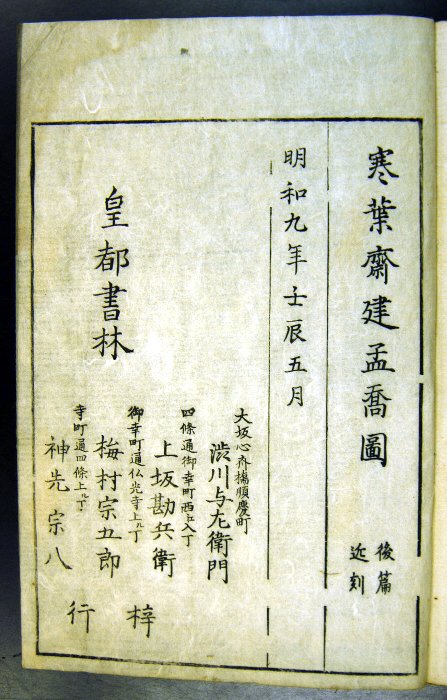 寒葉齋建孟喬圖
後篇
近刻
明和九年壬辰五月
大坂心齊橋順慶町
渋川与左衛門
四條通御幸町西入丁
上坂勘兵衛
御幸町通仏光寺上ル丁
梅村宗五郎
寺町通四條上ル丁
神先宗八
皇都書林
梓行